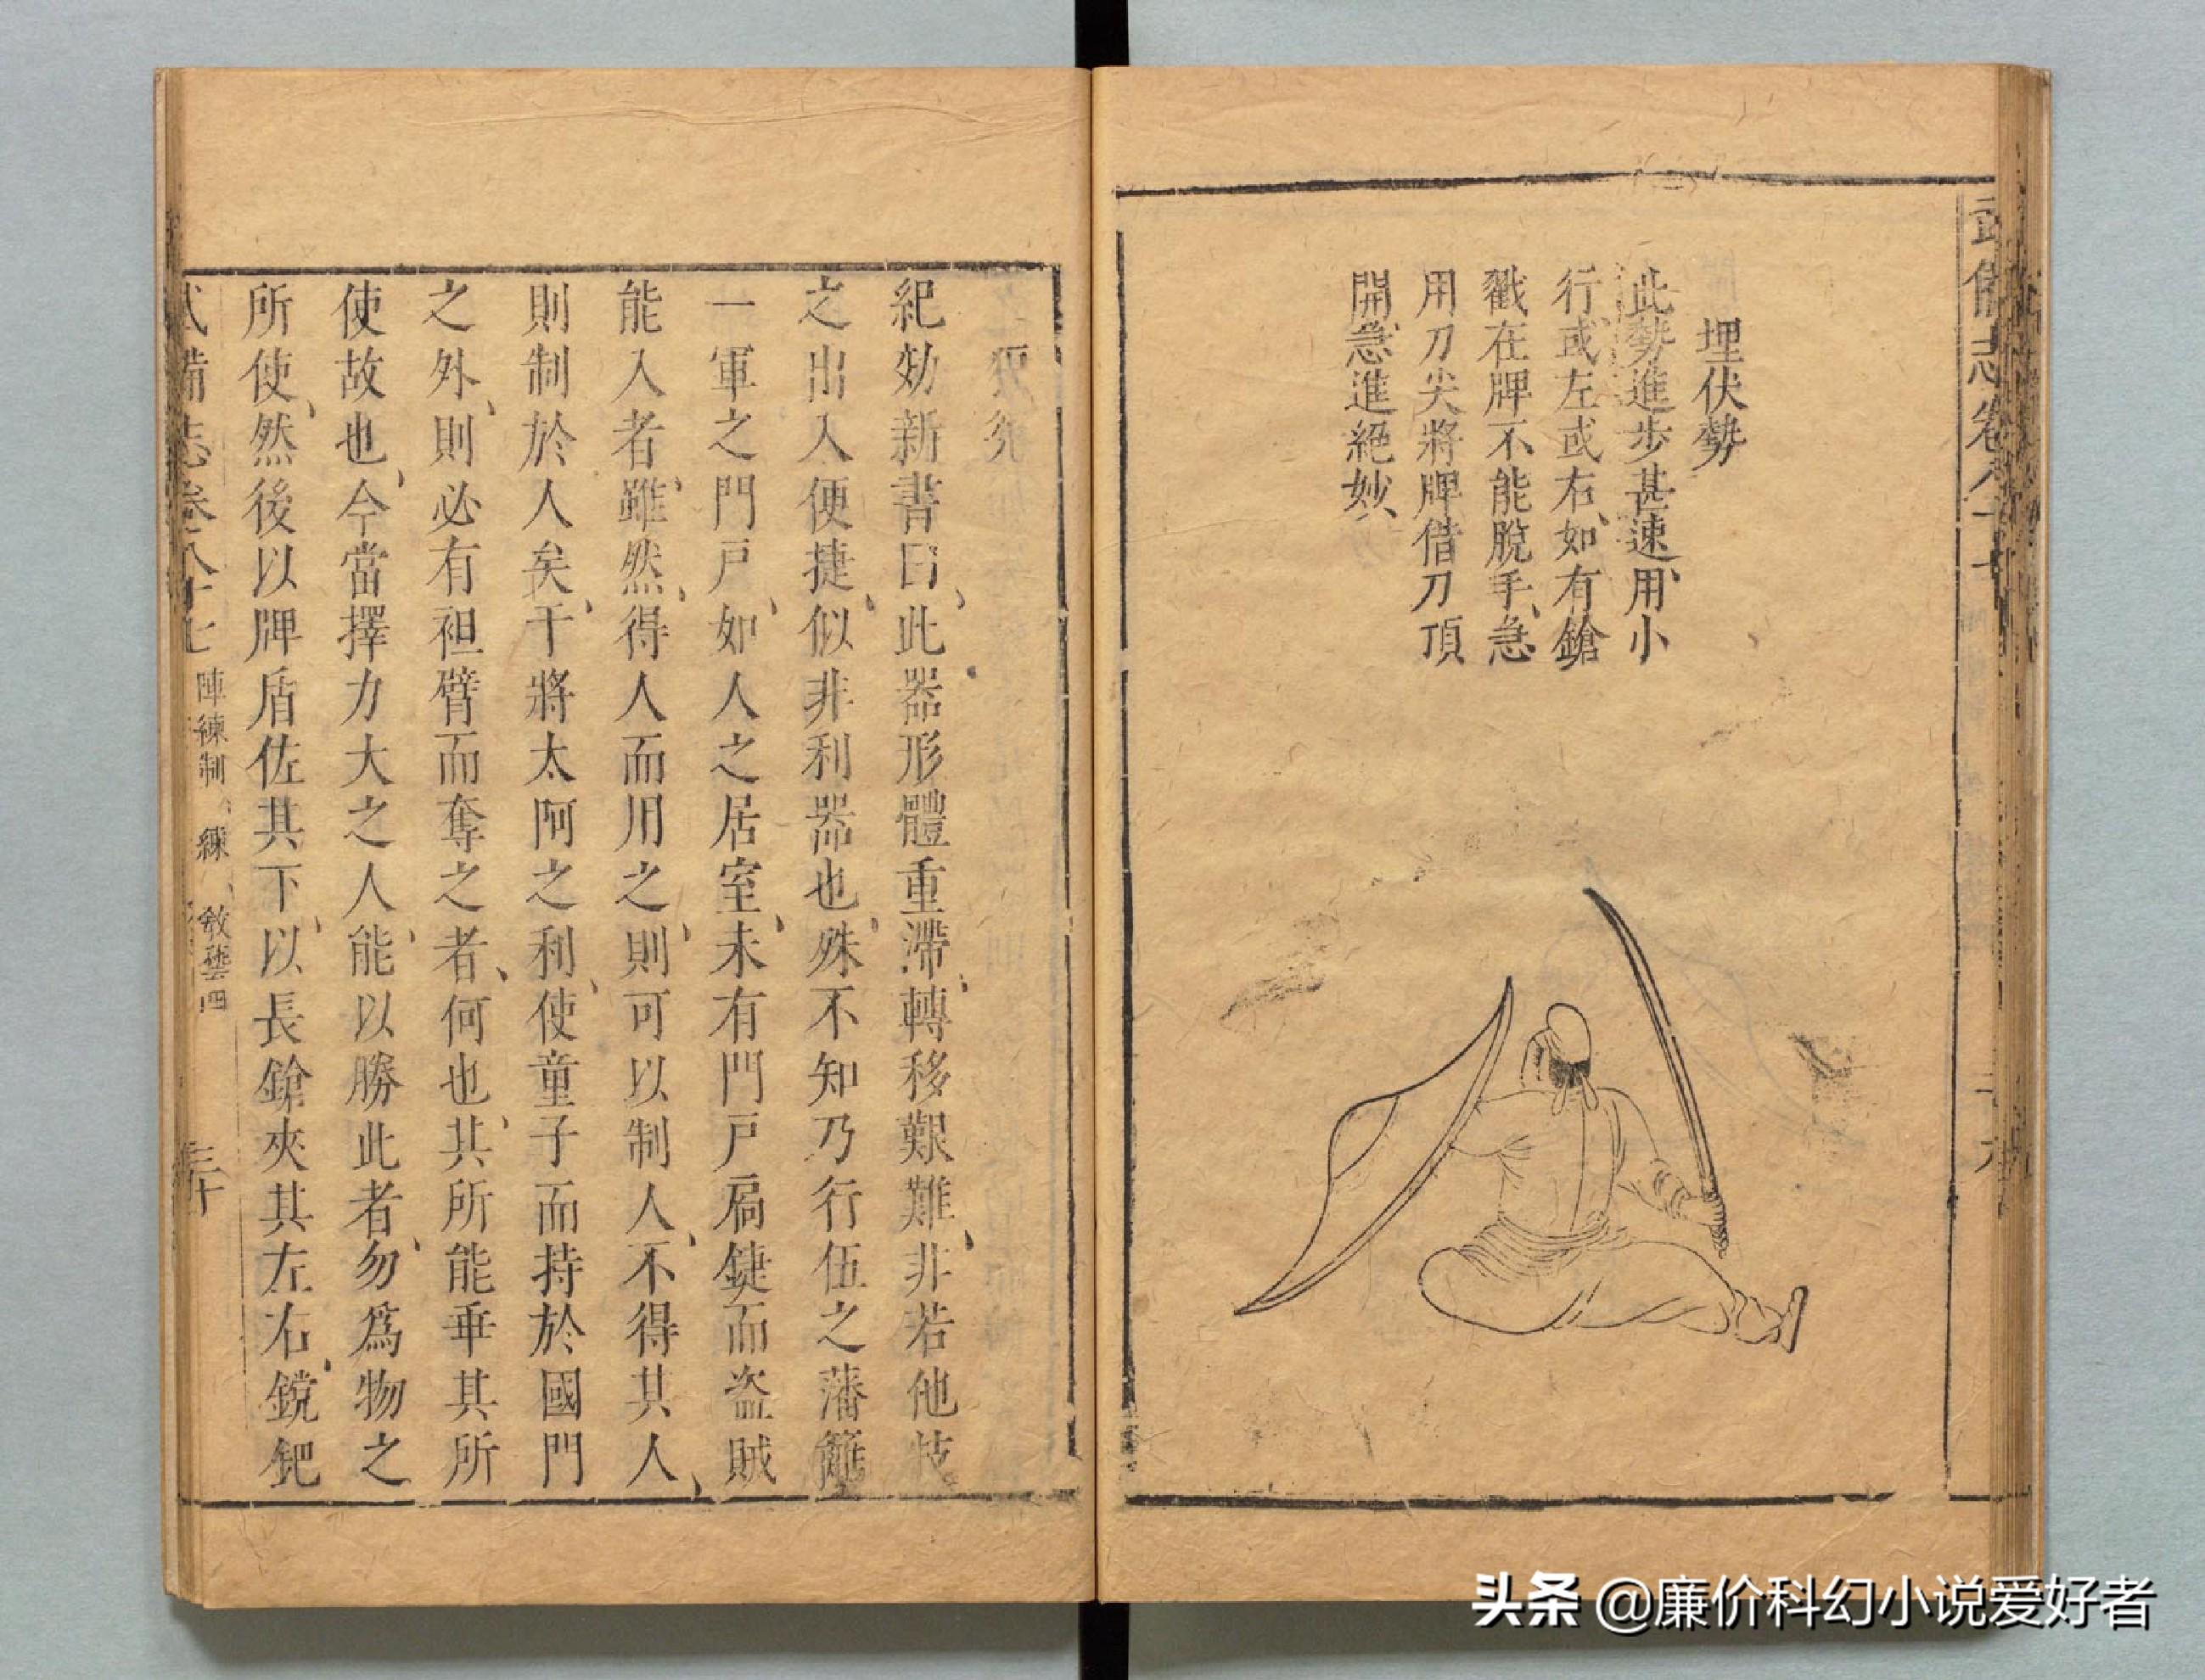 武備志卷八十七
埋伏勢
此勢進步甚速、用小
行或左或右、如有鎗
戳在牌不能脫手、急
用刀尖將牌借刀頂
開急進絕妙、
狼筅
紀効新書曰、此器形體重滯、轉移艱難、非若他技
之出入便捷、似非利器也、殊不知乃行伍之藩籬
一軍之門戶、如人之居室、未有門戶扃鍵而盜賊
能入者、雖然、得人而用之、則可以制人、不得其人、
則制於人矣、干將太阿之利、使童子而持於國門
之外、則必有袒臂而奪之者、何也、其所能垂其所
使故也、今當擇力大之人、能以勝此者、勿爲物之
所使、然後以牌盾佐其下、以長鎗夾其左右、鎲鈀
武備志卷八十七 陣練制 練 敎藝四 三十
头条 @廉价科幻小说爱好者